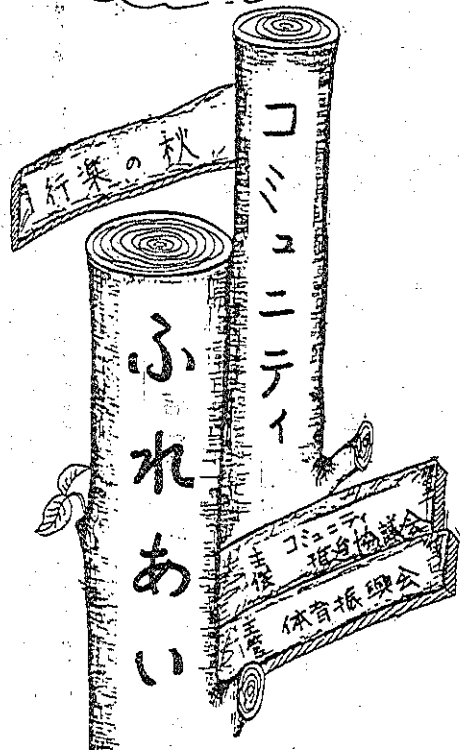 行楽の秋
コミュニティ
ふれあい
主催 コミュニティ
協議会
主管 体育振興会